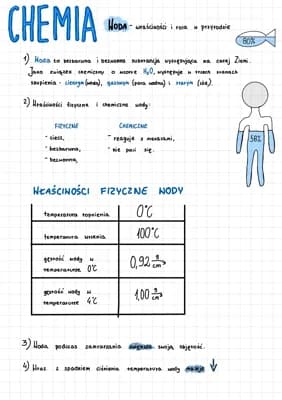 CHEMIA Woda - właściwości i rola w przyrodzie
80%
1) Woda to bezbarwna i bezwonna substancja występująca na całej Ziemi.
Jako związek chemiczny o wzorze H₂O, występuje w trzech stanach
skupienia - ciekłym (woda), gazowym (para wodna) i stałym (lód).
2) Właściwości fizyczne i chemiczne wody:
FIZYCZNE CHEMICZNE
- ciecz, - reaguje z metalami,
- bezbarwna, - nie pali się.
- bezwonna,
58%
WŁAŚCIWOŚCI FIZYCZNE WODY
temperatura topnienia 0°C
temperatura wrzenia 100°C
gęstość wody w
temperaturze 0°C 0,92 g/cm³
gęstość wody w
temperaturze 4°C 1,00 g/cm³
3) Woda podczas zamarzania zwiększa swoją objętość.
4) Wraz z spadkiem ciśnienia temperatura wody maleje ↓